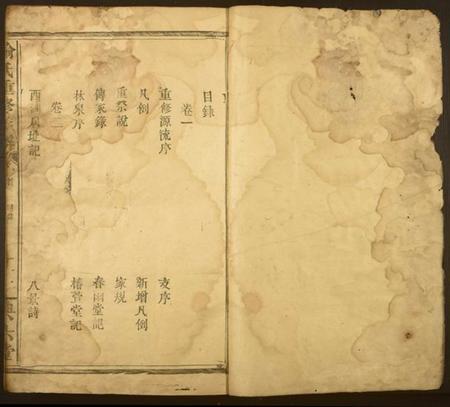 目錄
卷一
重修源流序 支序
凡例 新增凡例
重祭說 家規
傳家錄 春雨堂記
林泉序 椿萱堂記
卷二
酉 基址記 八景詩
氏重修